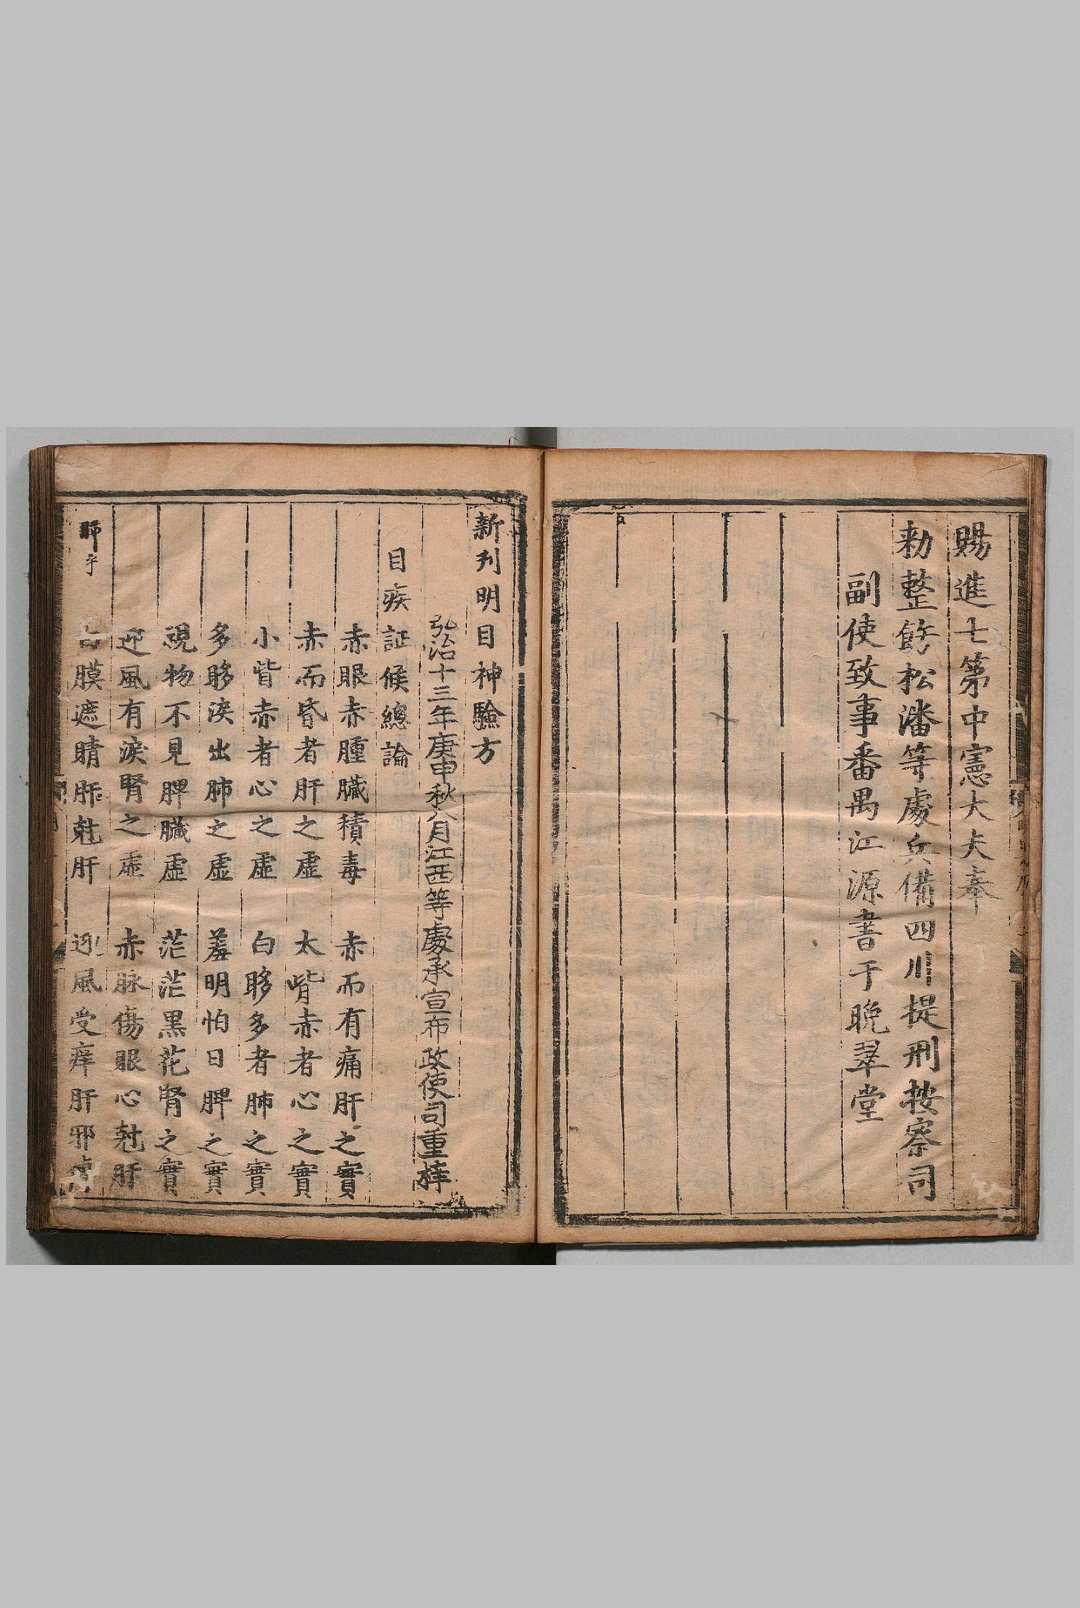 賜進士第中憲大夫奉
勑整飭松潘等處兵備四川提刑按察司
副使致事番禺江源書于晚翠堂
新刋明目神驗方
弘治十三年庚申秋八月江西等處承宣布政使司重梓
目疾証候總論
赤眼赤腫臟積毒 赤而有痛肝之實
赤而昏者肝之虛 大眥赤者心之實
小眥赤者心之虛 白眵多者肺之實
多眵淚出肺之虛 羞明怕日脾之實
視物不見脾臟虛 茫茫黑花腎之實
迎風有淚腎之虛 赤脉傷眼心尅肝
膜遮睛肺尅肝 迎風受痒肝邪